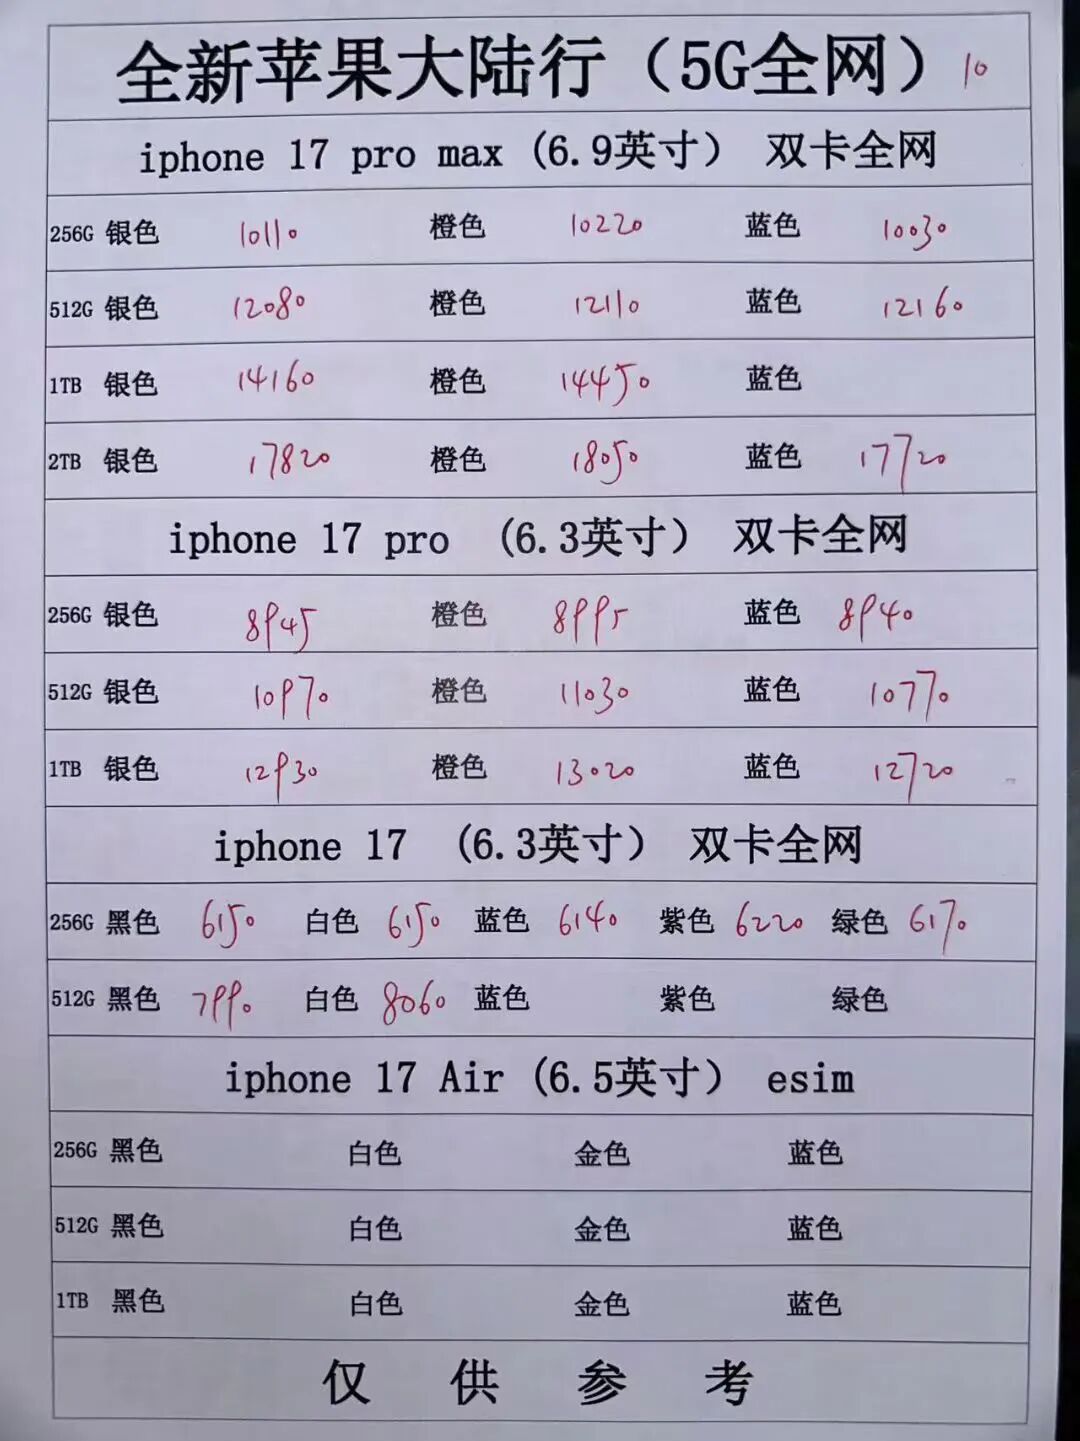 全新苹果大陆行（5G全网）10
iphone 17 pro max (6.9英寸） 双卡全网
256G 银色 10110 橙色 10220 蓝色 10030
512G 银色 12080 橙色 12110 蓝色 12160
1TB 银色 14160 橙色 14450 蓝色
2TB 银色 17820 橙色 18050 蓝色 17720
iphone 17 pro (6.3英寸） 双卡全网
256G 银色 8945 橙色 8995 蓝色 8940
512G 银色 10970 橙色 11030 蓝色 10770
1TB 银色 12930 橙色 13020 蓝色 12720
iphone 17 (6.3英寸） 双卡全网
256G 黑色 6150 白色 6150 蓝色 6140 紫色 6220 绿色 6170
512G 黑色 7990 白色 8060 蓝色 紫色 绿色
iphone 17 Air (6.5英寸） esim
256G 黑色 白色 金色 蓝色
512G 黑色 白色 金色 蓝色
1TB 黑色 白色 金色 蓝色
仅供参考